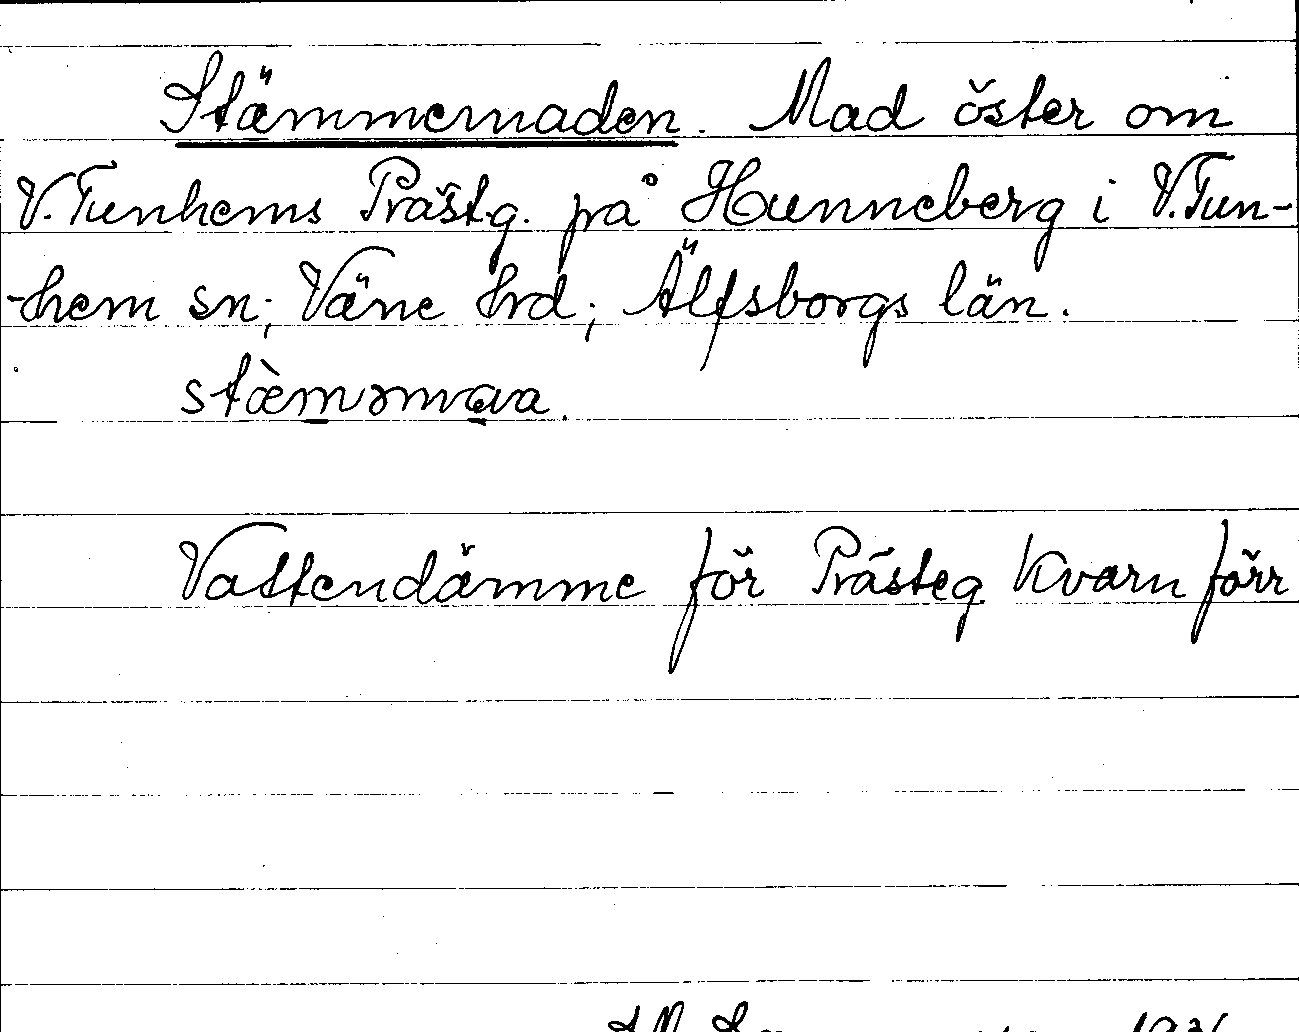 Stämmemaden. Mad öster om
V. Tunhems Prästg. på Hunneberg i V. Tun-
-hem sn; Väne hrd; Älfsborgs län.
stæ̀məmaa.
Vattendämme för Prästeg Kvarn förr